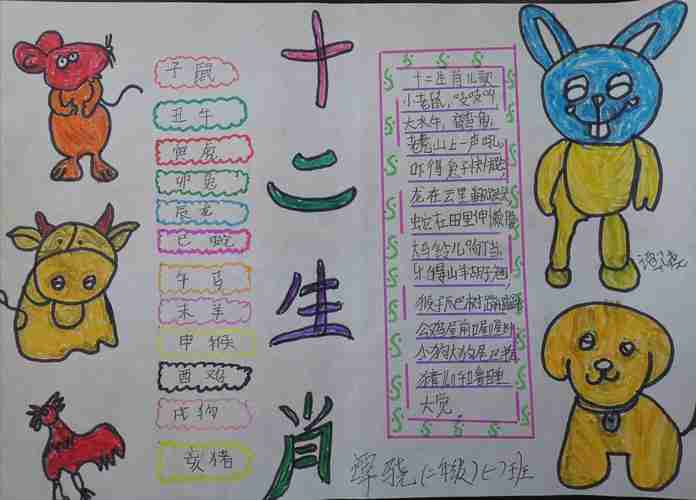 子鼠
丑牛
寅虎
卯兔
辰龙
巳蛇
午马
未羊
申猴
酉鸡
戌狗
亥猪
十二生肖
十二生肖儿歌
小老鼠，吱吱叫，
大水牛，
老虎山上一声吼，
吓得兔子快快跑，
龙在云里翻跟头
蛇在田里伸懒腰
大马铃儿响叮当，
乐得山羊胡子翘，
猴子爬树
公鸡屋前
小狗
猪儿
大觉。
(二年级)(一)班